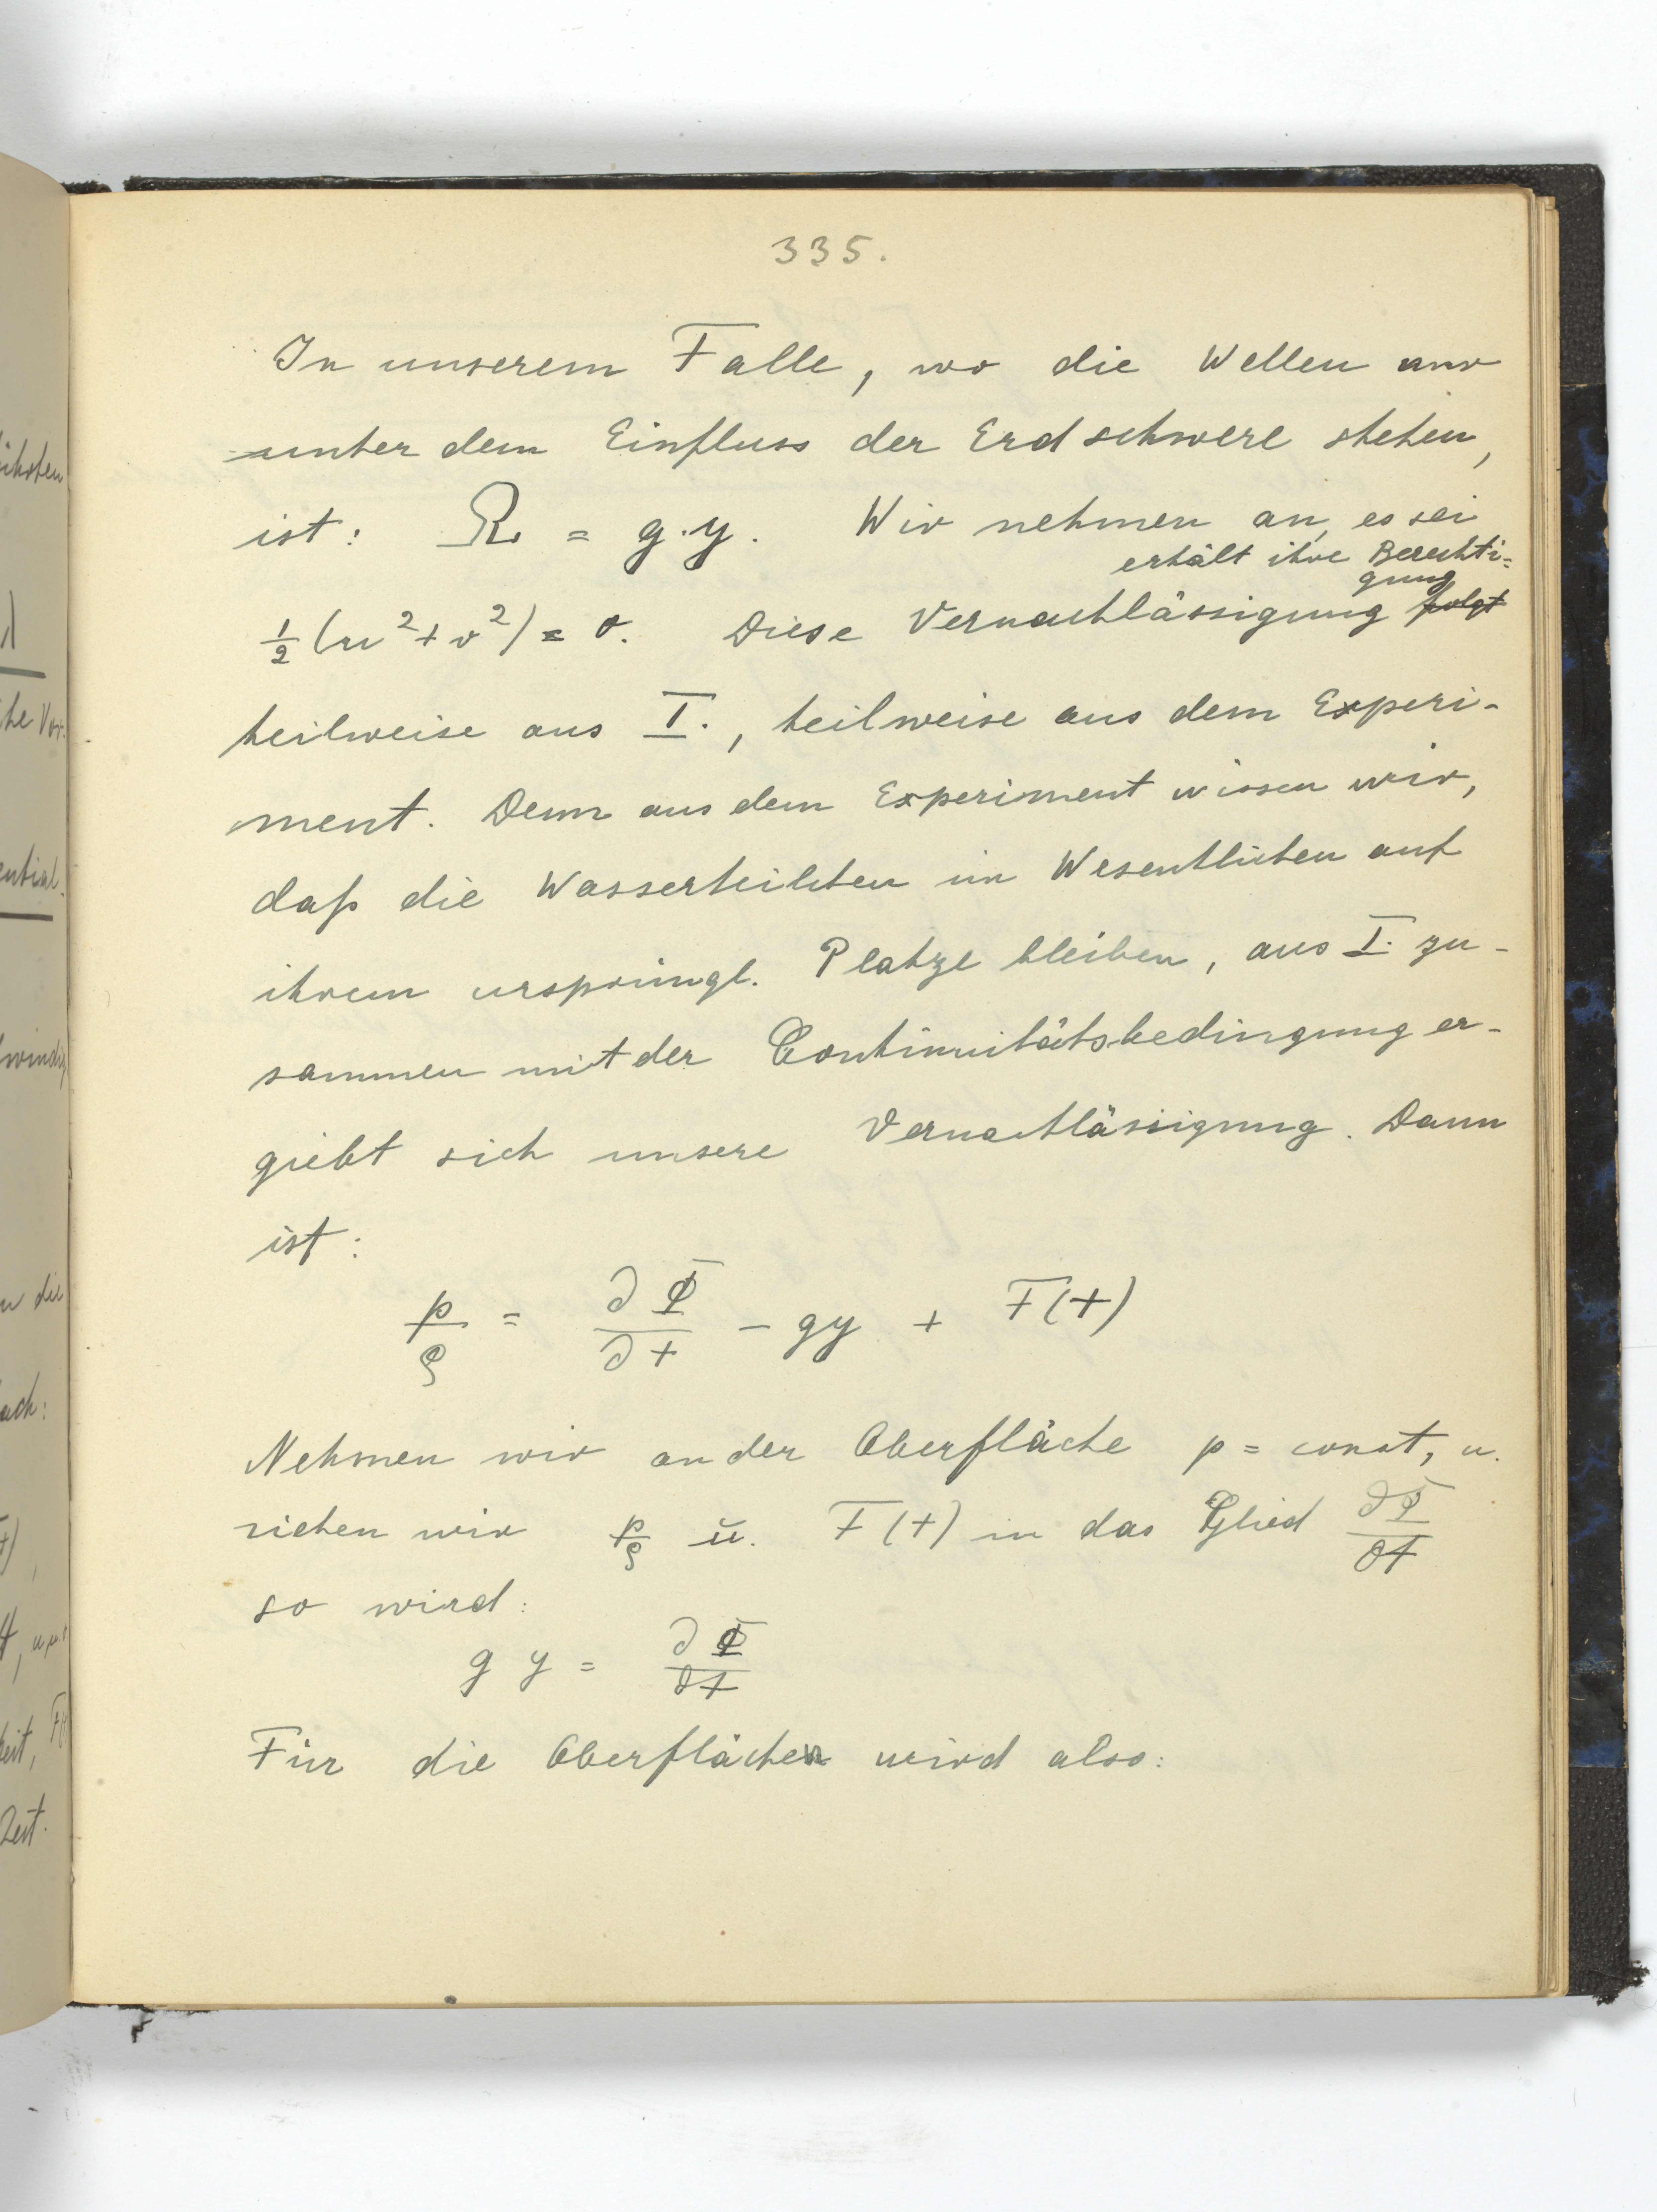 335.
In unserem Falle, wo die Wellen nur
unter dem Einfluss der Erdschwere stehen,
ist: Ω = g.y. Wir nehmen an, es sei
erhält ihre Berechti=
gung
½ (u² + v²) = 0. Diese Vernachlässigung folgt
teilweise aus I., teilweise aus dem Experi-
ment. Denn aus dem Experiment wissen wir,
daß die Wasserteilchen im Wesentlichen auf
ihrem ursprüngl. Platze bleiben, aus I. zu-
sammen mit der Continuitätsbedingung er-
giebt sich unsere Vernachlässigung. Dann
ist:
p/ρ = ∂Φ/∂t - gy + F(t)
Nehmen wir an der Oberfläche p = const, u.
ziehen wir p/ρ u. F(t) in das Glied ∂Φ/∂t
so wird:
g y = ∂Φ/∂t
Für die Oberfläche wird also: